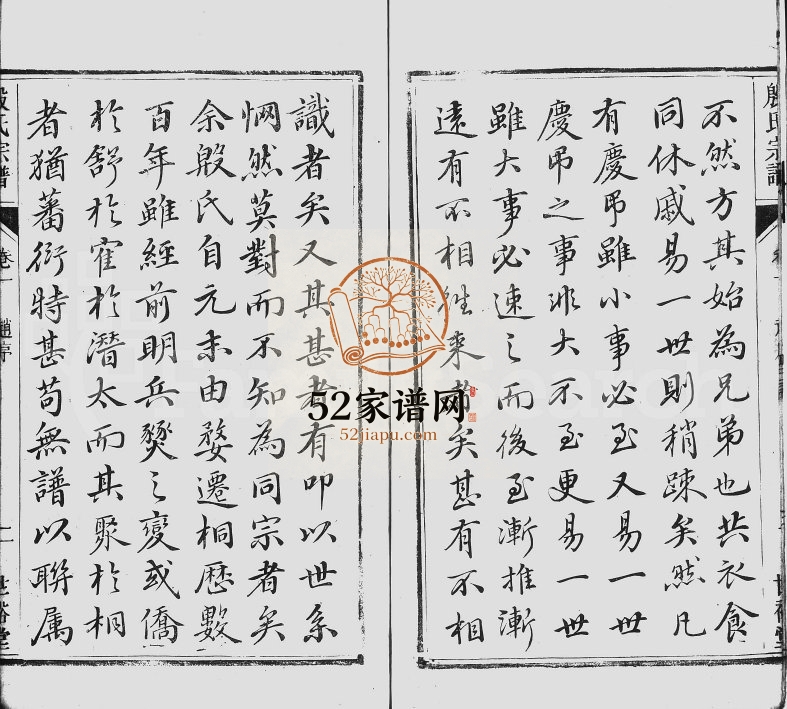 殷氏宗譜
不然方其始為兄弟也共衣食
同休戚易一世則稍踈矣然凡
有慶弔雖小事必至又易一世
慶弔之事非大不至更易一世
雖大事必速之而後至漸推漸
遠有不相往来者矣甚有不相
識者矣又其甚者有叩以世系
惘然莫對而不知為同宗者矣
余殷氏自元末由婺遷桐歷數
百年雖經前明兵燹之變或僑
於舒於霍於潛太而其聚於桐
者猶蕃衍特甚苟無譜以聯属
殷氏宗譜
卷一
二
世裕堂
52家谱网
52jiapu.com